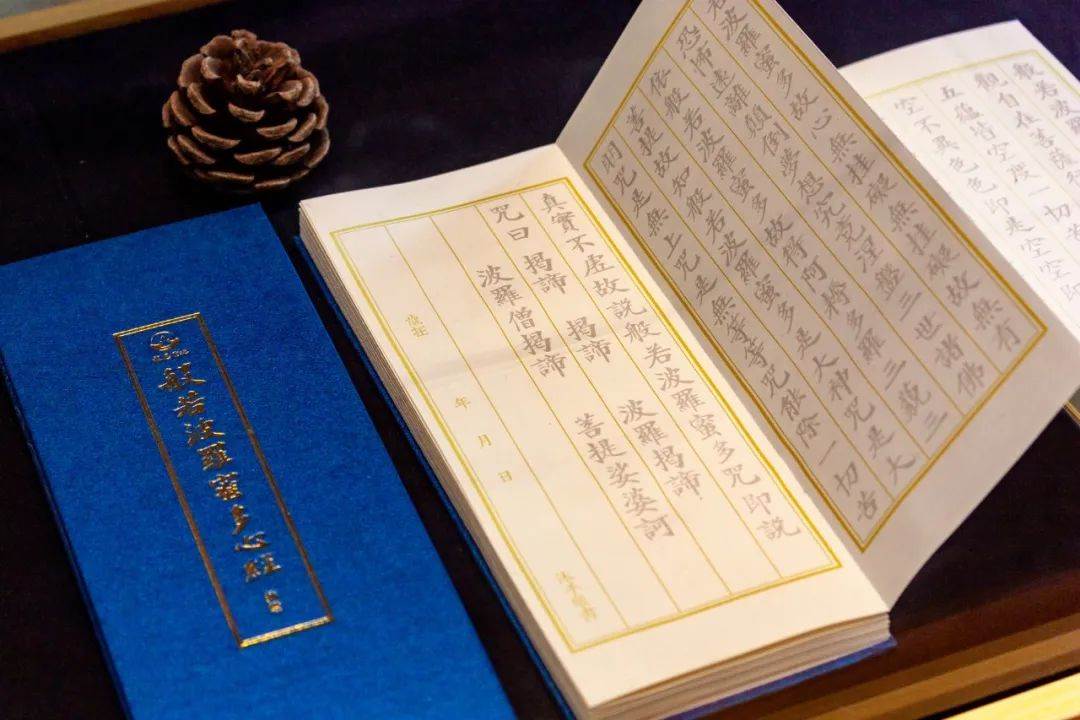 般若波羅
觀自在菩薩
五蘊皆空度一切苦
空不異色色即是空空即
若波羅蜜多故心無挂礙無挂礙故無有
恐怖遠離顛倒夢想究竟涅盤三世諸佛
依般若波羅蜜多故得阿耨多羅三藐三
菩提故知般若波羅蜜多是大神咒是大
明咒是無上咒是無等等咒能除一切苦
真實不虛故說般若波羅蜜多咒即說
咒曰 揭諦 揭諦 波羅揭諦
波羅僧揭諦 菩提娑婆訶
歲在 年 月 日 沐手敬書
般若波羅蜜多心經